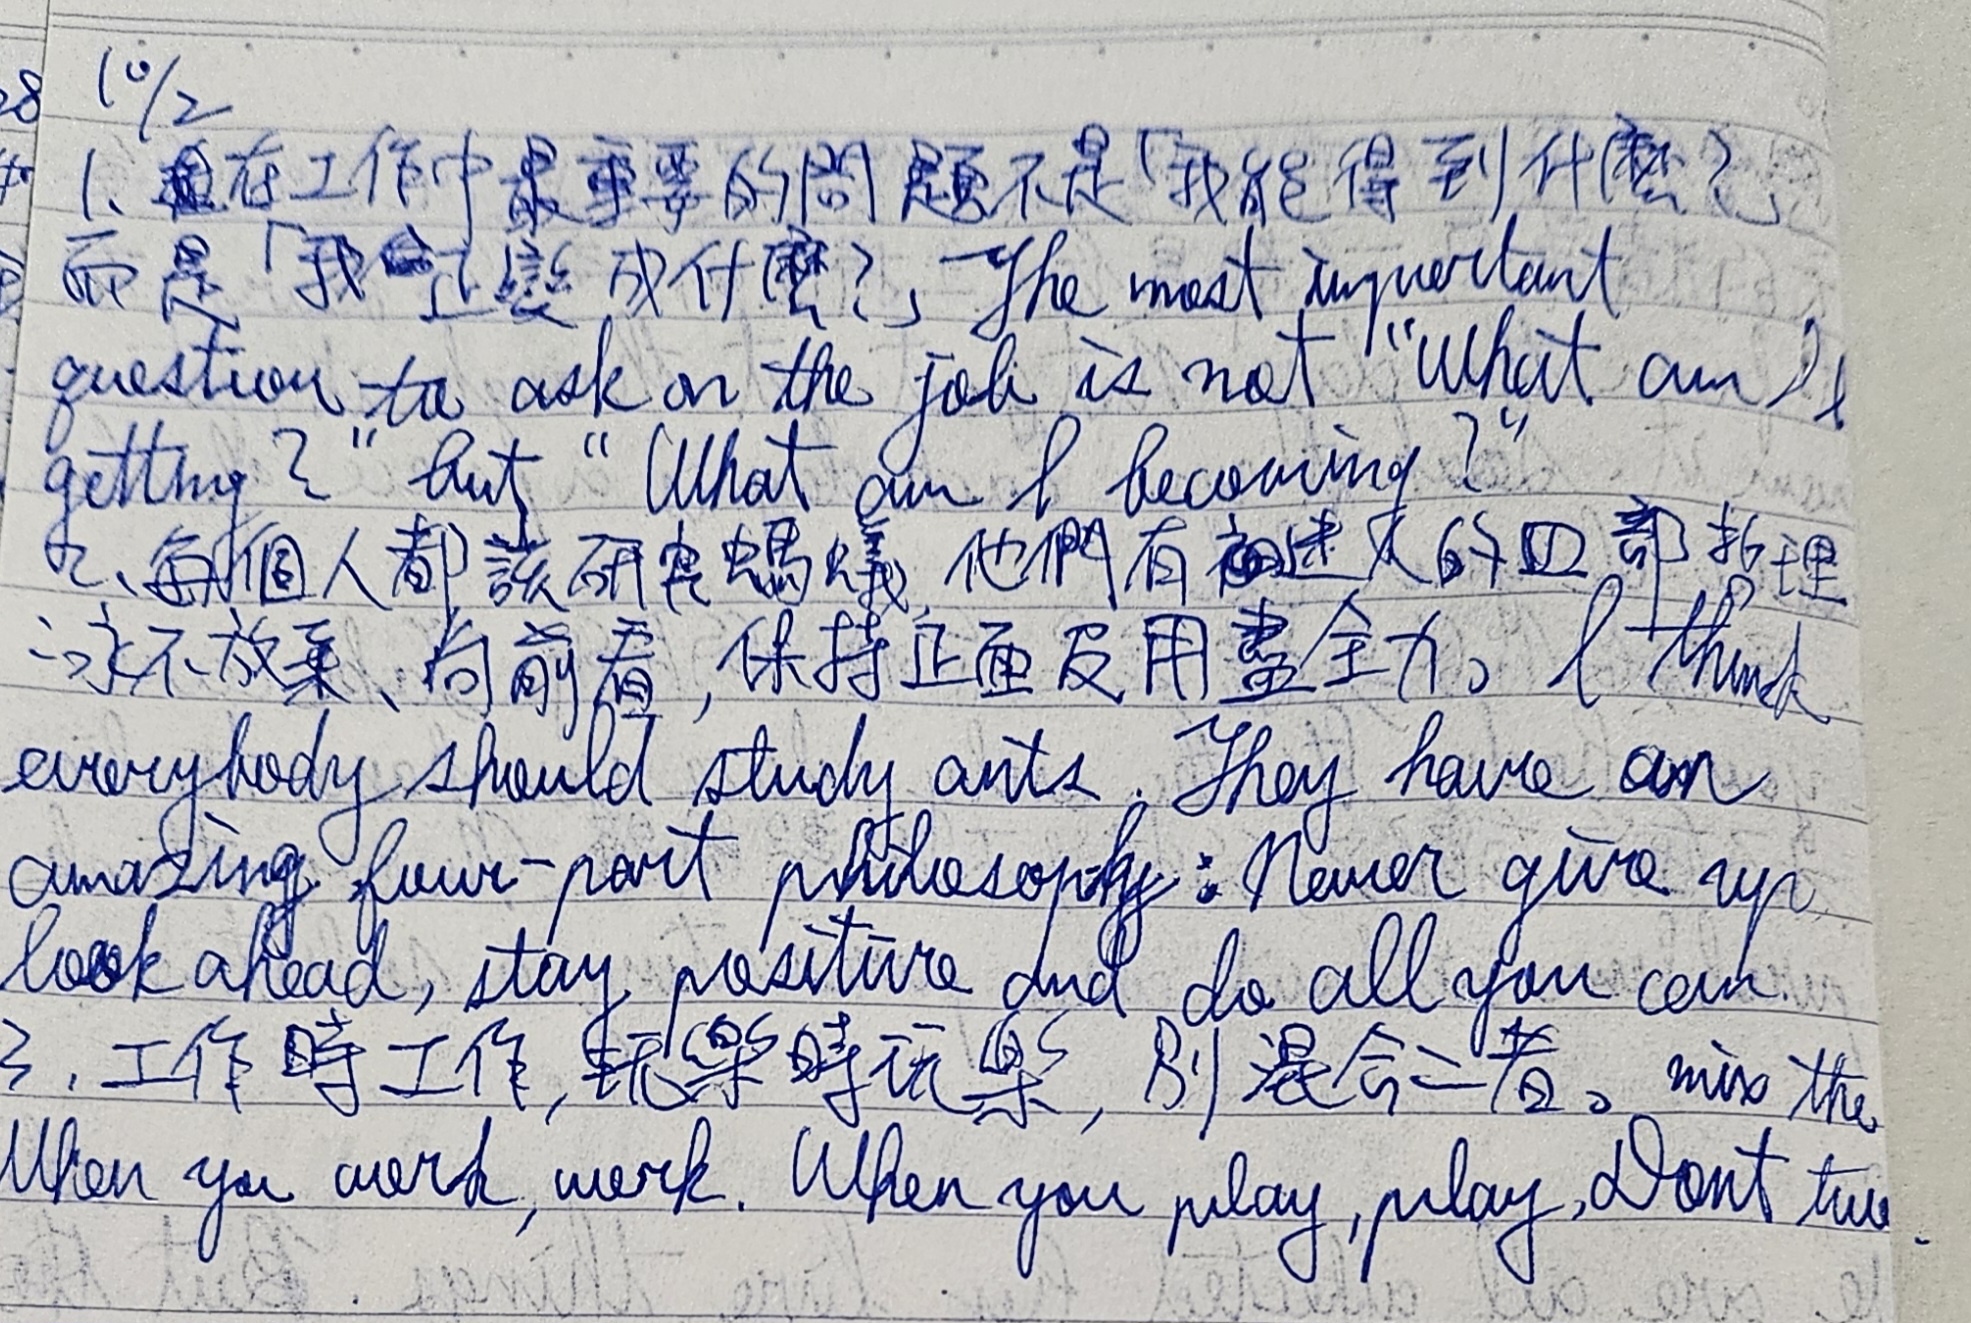 10/2
1、在工作中最重要的問題不是「我能得到什麼?」
而是「我正變成什麼?」The most important
question to ask on the job is not "What am I
getting?" but "What am I becoming?"
2、每個人都該研究螞蟻,他們有迷人的四部哲理
:永不放棄、向前看,保持正面及用盡全力。I think
everybody should study ants. They have an
amazing four-part philosophy: Never give up,
look ahead, stay positive and do all you can.
3.工作時工作,玩樂時玩樂,別混合二者。mix the
When you work, work. When you play, play, Dont two.